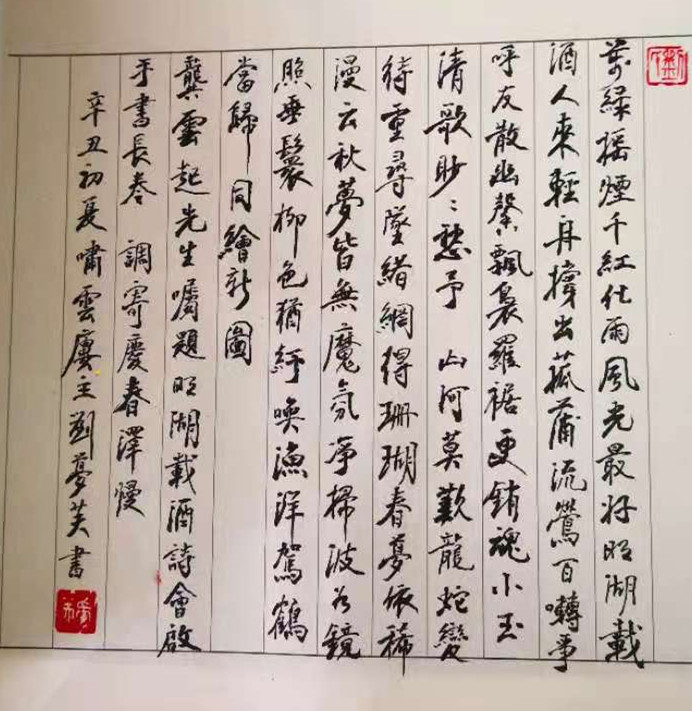 萬綠搖煙千紅化雨風光最好明湖載
酒人來輕舟撐出菰蒲流鶯百囀爭
呼友散幽馨飄裊羅裾更銷魂小玉
清歌眇〻愁予　山河莫歎龍蛇變
待重尋墜緒網得珊瑚春夢依稀
漫云秋夢皆無魔氛淨掃波為鏡
照垂鬟柳色猶紓喚漁洋駕鶴
當歸同繪新圖
龔雲起先生囑題明湖載酒詩會啟
手書長卷　調寄慶春澤慢
辛丑初夏嘯雲廔主劉夢芙書